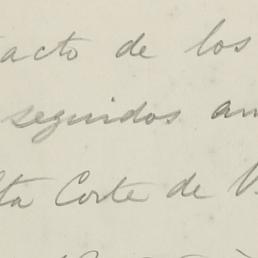 tacto de los
seguidos an
ta Corte de V